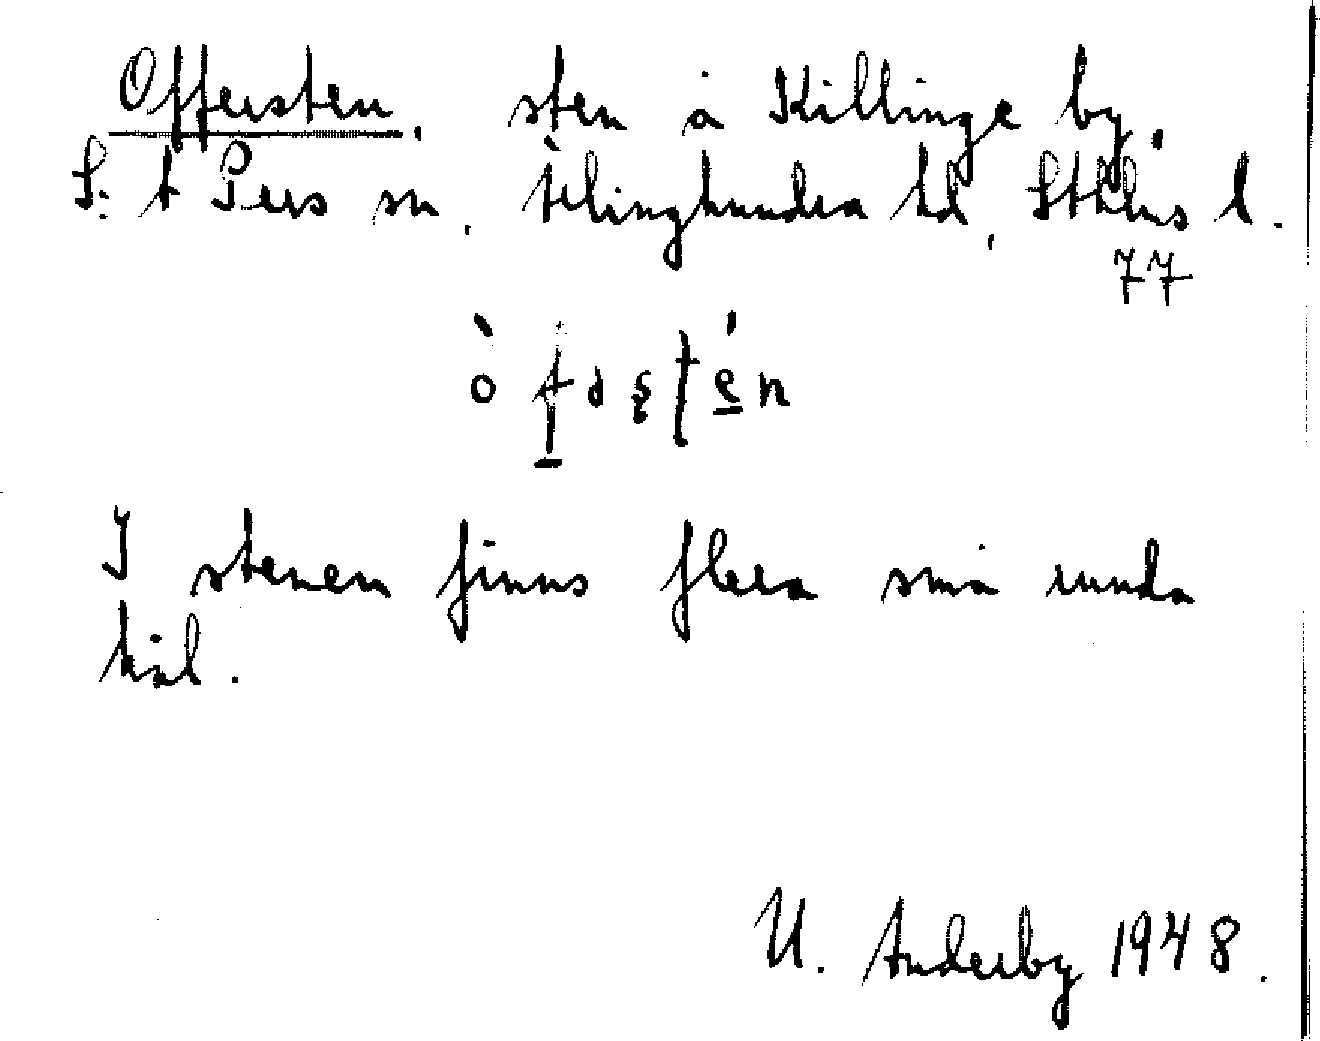 Offersten. sten å Killinge by.
S:t Pers sn, Ärlinghundra hd, Sthlms l.
77
I stenen finns flera små runda
hål.
U. Anderby 1948.